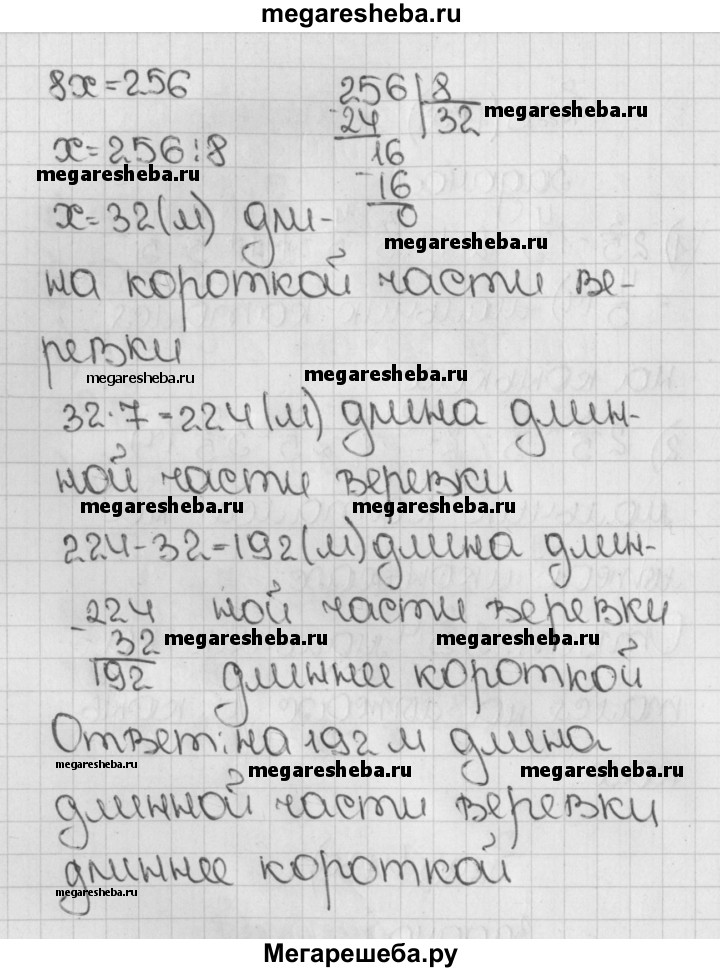 megaresheba.ru
8x=256 256 8
24 32 megaresheba.ru
x=256:8 16
megaresheba.ru 16
x=32(м) дли- 0
megaresheba.ru
на короткой части ве-
ревки
megaresheba.ru megaresheba.ru
32·7=224(м) длина длин-
ной части веревки
megaresheba.ru megaresheba.ru
224-32=192(м) длина длин-
-224 ной части веревки
32 megaresheba.ru megaresheba.ru
192 длиннее короткой
Ответ: на 192 м длина
megaresheba.ru megaresheba.ru megaresheba.ru
длинной части веревки
длиннее короткой
megaresheba.ru
Мегарешеба.ру